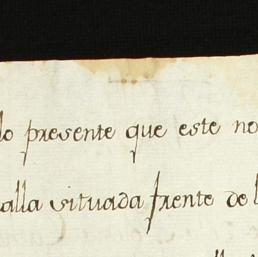 lo presente que este no
alla vituada frente de l